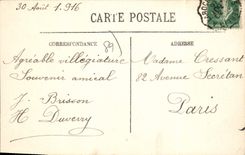 30 Août 1.916
CARTE POSTALE
CORRESPONDANCE
89
ADRESSE
Agréable villégiature
Souvenir amical
J. Brisson
H. Duverry
Madame Cressant
82 Avenue Secrétan
Paris